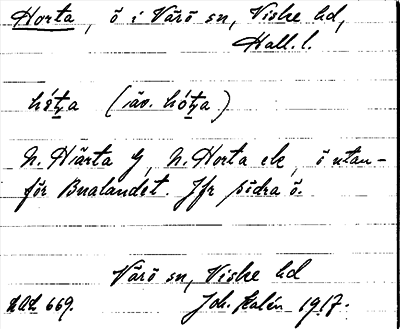 Horta, ö i Värö sn, Viske hd,
Hall. l.
hó̤ta (äv. hó̤ta)
N. Härta G, N. Horta ek, ö utan-
för Bualandet. Jfr södra ö.
Värö sn, Viske hd
669. Joh. Kalén 1917.